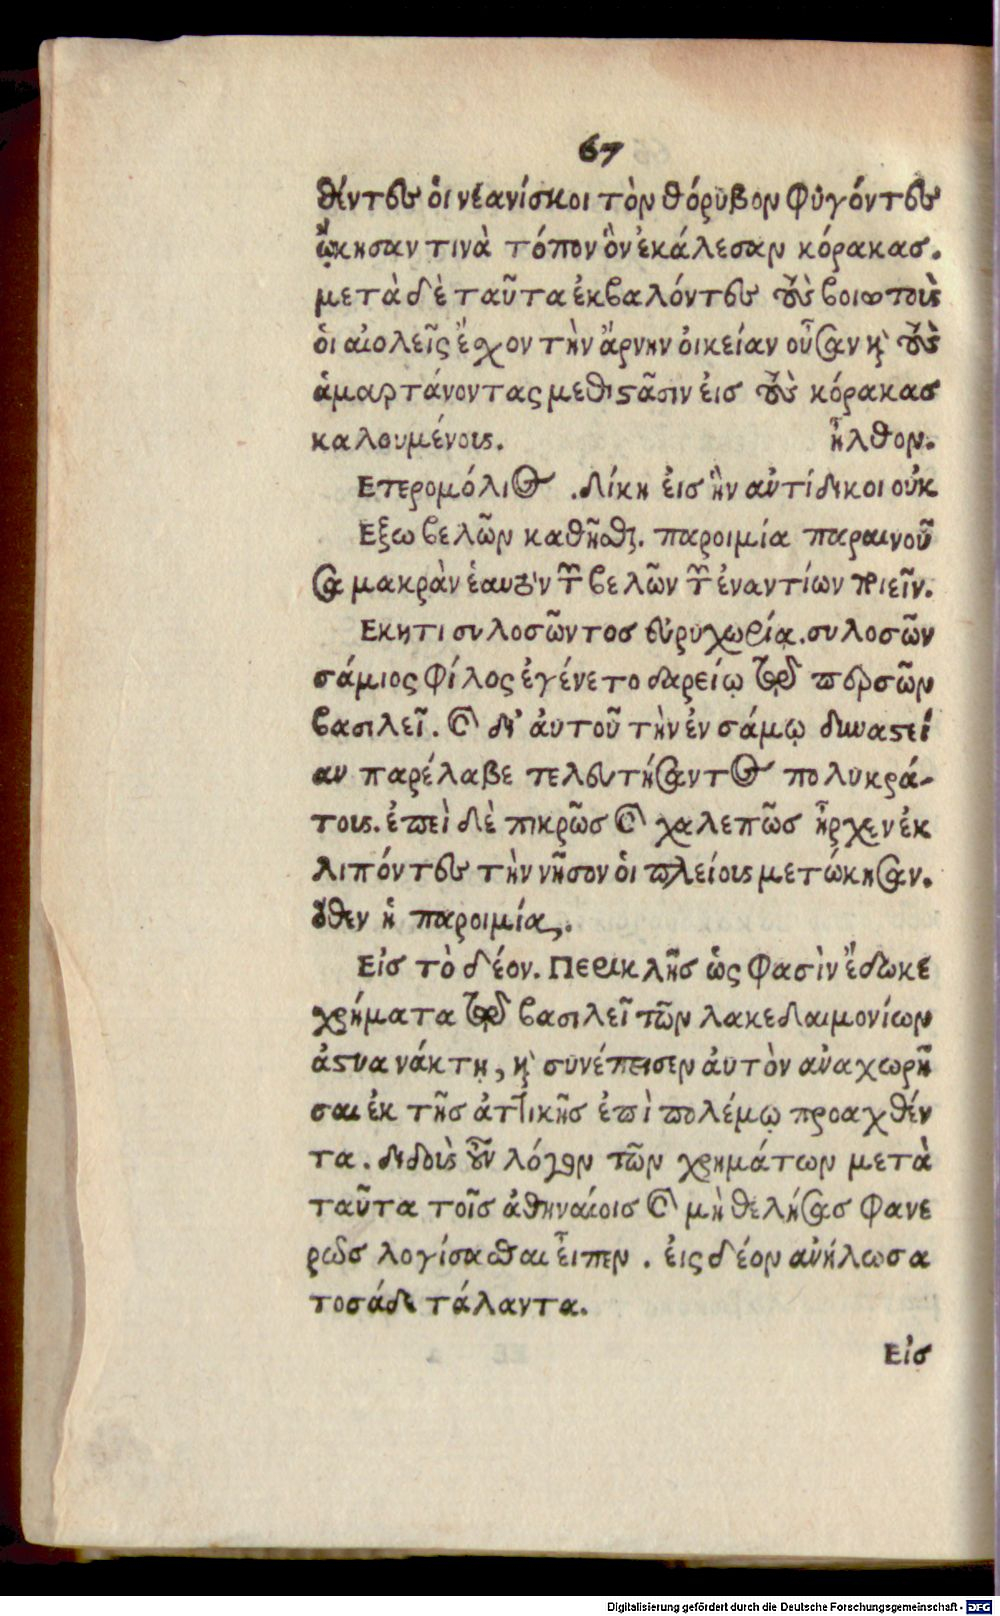 67
θέντες ὁι νεανίσκοι τὸν θόρυβον φυγόντες
ᾤκησαν τινὰ τόπον ὃν ἐκάλεσαν κόρακας.
μετὰ δὲ ταῦτα ἐκβαλόντες τοὺς βοιωτοὺς
ὁι αἰολεῖς ἔχον τὴν ἄρνην ὀικείαν οὖσαν καὶ τοὺς
ἁμαρτάνοντας μεθιστᾶσιν ἐις τοὺς κόρακας
καλουμένους. ἦλθον.
Ετερομόλιος .δίκη ἐις ἣν ἀντίδικοι οὐκ
Εξω βελῶν καθῆσθαι. παροιμία παραινοῦ
σα μακρὰν ἑαυτὸν τῶν βελῶν τῶν ἐναντίων ποιεῖν.
Εκητι συλοσῶντος εὐρυχωρία.συλοσῶν
σάμιος φίλος ἐγένετο δαρείῳ τῷ περσῶν
βασιλεῖ. καὶ δι' ἀυτοῦ τὴν ἐν σάμῳ δυναστεί
αν παρέλαβε τελευτήσαντος πολυκρά-
τους. ἐπεὶ δὲ πικρῶς καὶ χαλεπῶς ἦρχεν ἐκ
λιπόντες τὴν νῆσον ὁι πλείους μετώκησαν.
ὅθεν ἡ παροιμία.
Εἰς τὸ δέον. Περικλῆς ὡς φασὶν ἔδωκε
χρήματα τῷ βασιλεῖ τῶν λακεδαιμονίων
ἀστυανάκτῃ, καὶ συνέπεισεν ἀυτὸν ἀναχωρῆ
σαι ἐκ τῆς ἀττικῆς ἐπὶ πολέμῳ προαχθέν
τα. διδοὺς οὖν λόγον τῶν χρημάτων μετὰ
ταῦτα τοῖς ἀθηναίοις καὶ μὴ θελήσας φανε
ρῶς λογίσασθαι ἐῖπεν . ἐις δέον ἀνήλωσα
τοσάδε τάλαντα.
Εἰς
Digitalisierung gefördert durch die Deutsche Forschungsgemeinschaft - DFG